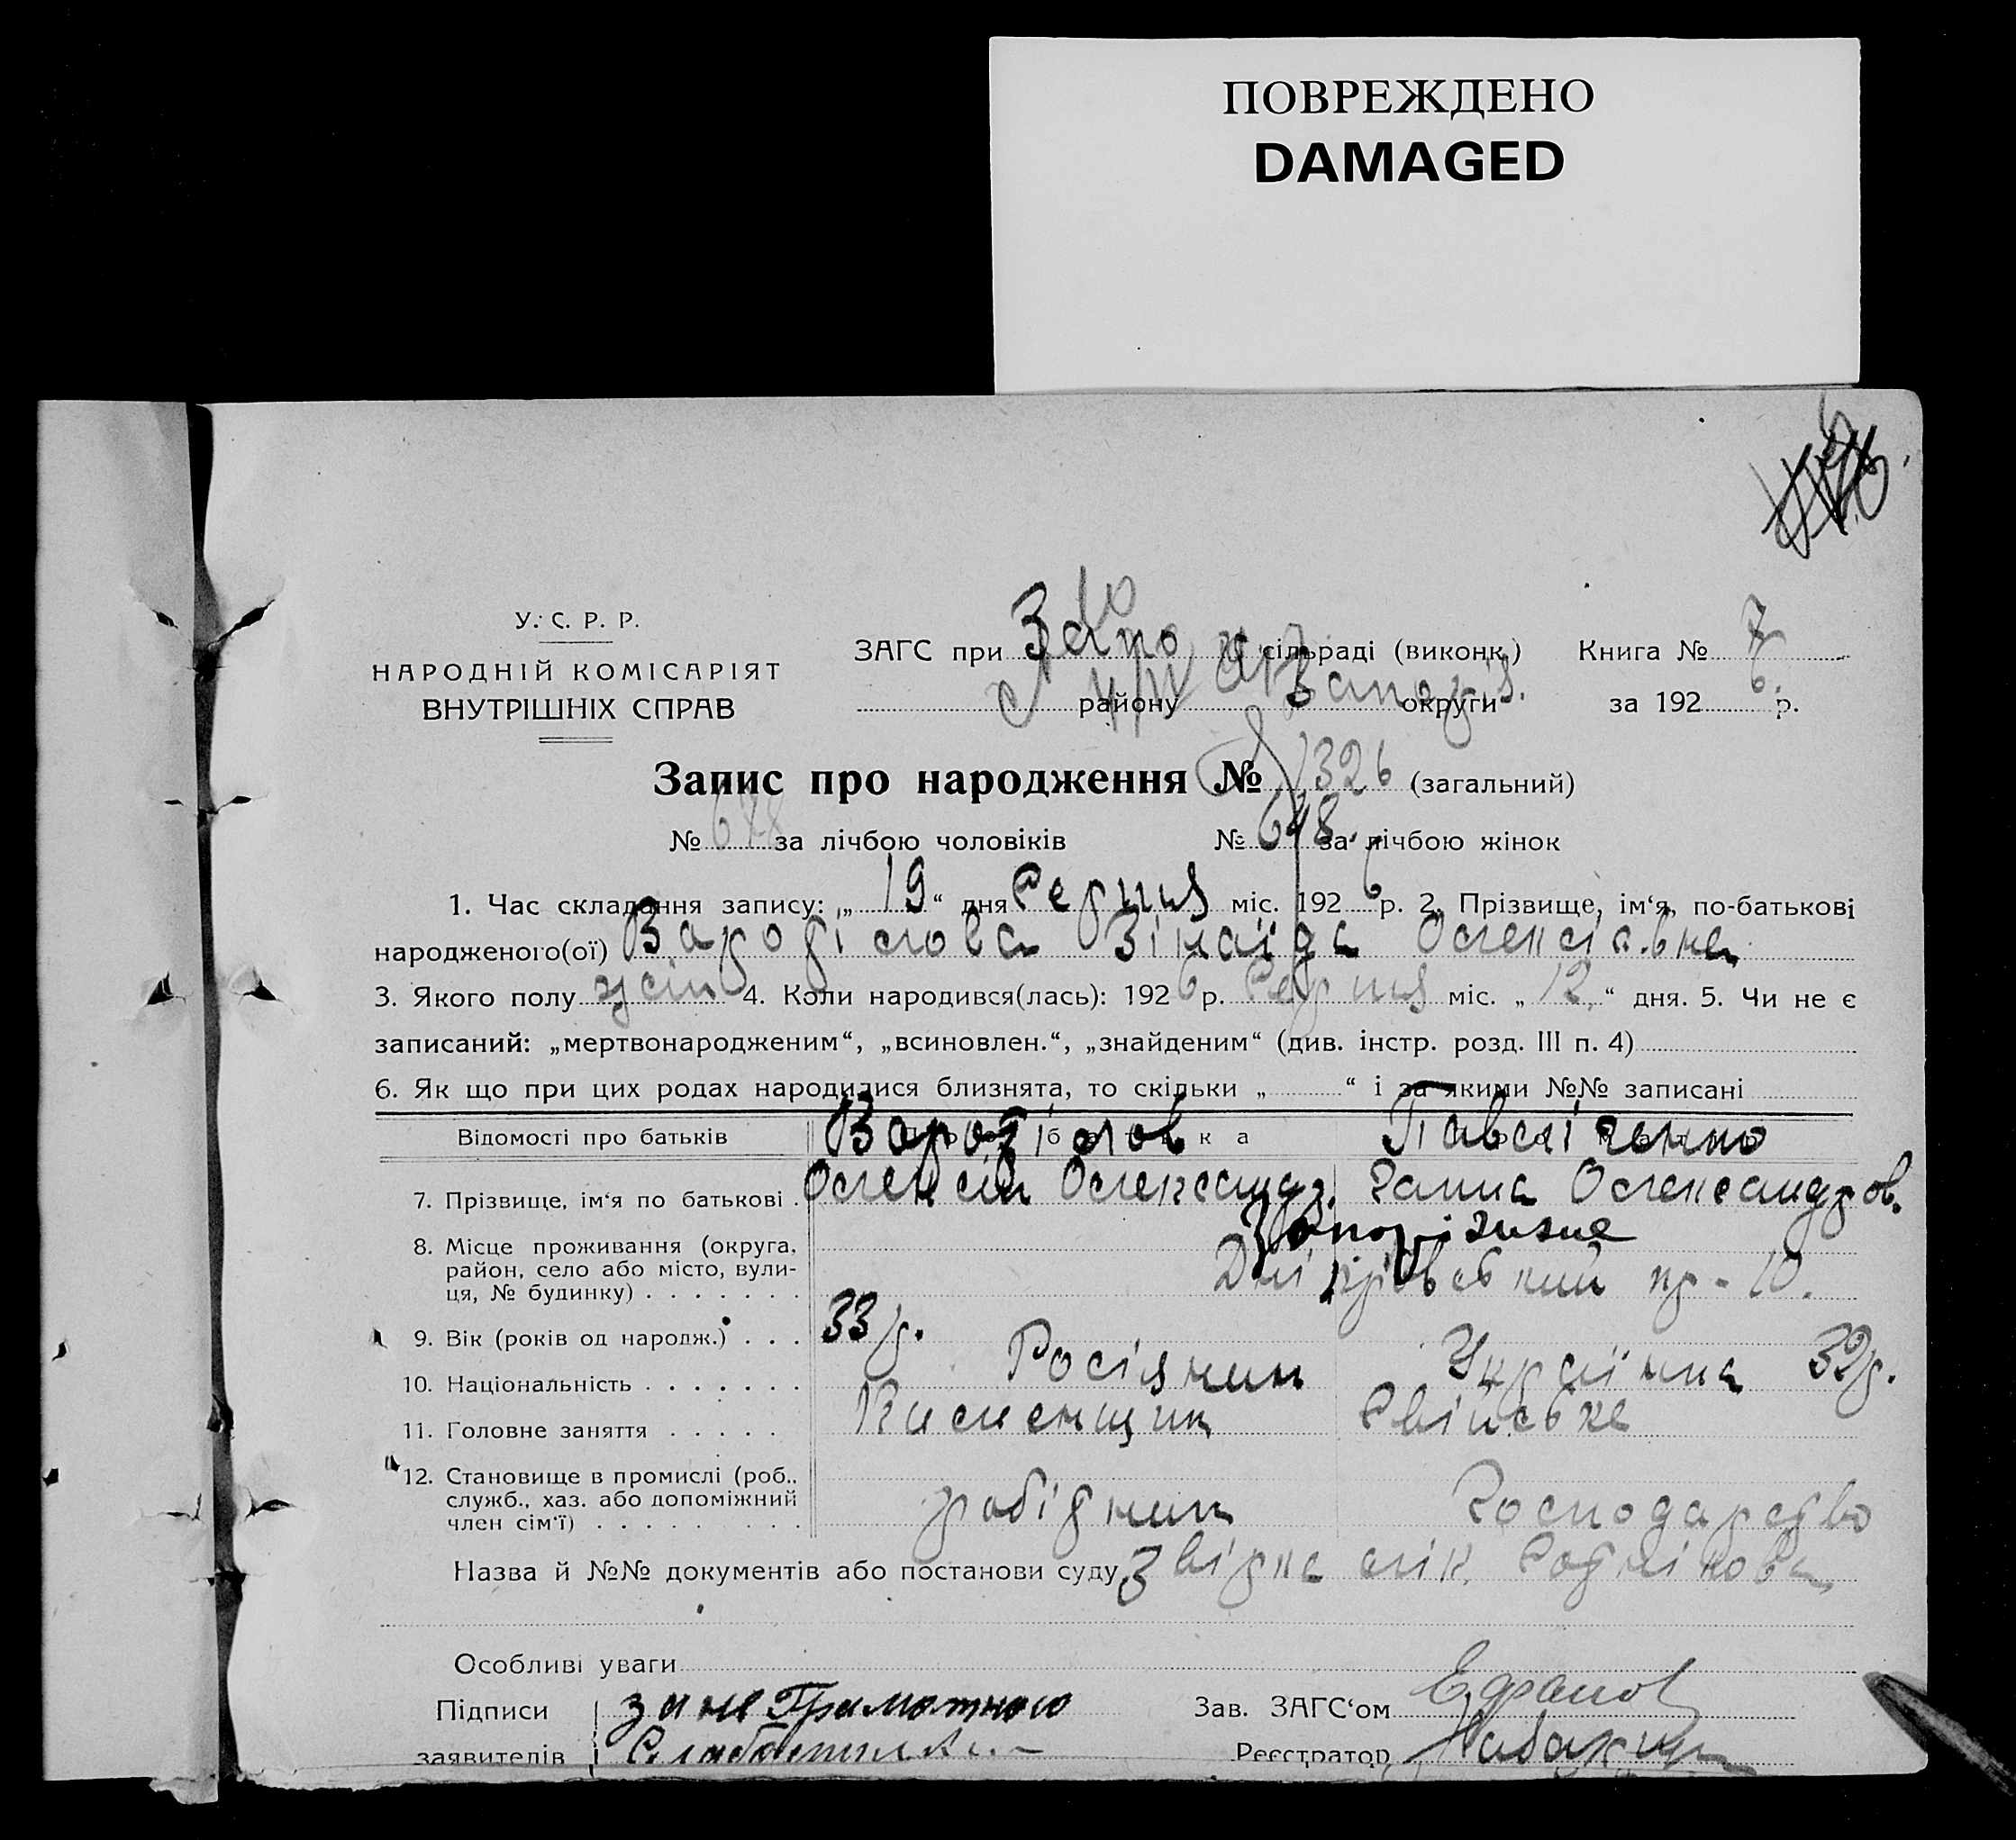 ПОВРЕЖДЕНО
DAMAGED
У. С. Р. Р.
НАРОДНІЙ КОМІСАРІЯТ
ВНУТРІШНІХ СПРАВ
ЗАГС при сільраді (виконк.) Книга № 7
району округи за 192 6 р.
Запис про народження № 1326 (загальний)
№ 678 за лічбою чоловіків № 648 за лічбою жінок
1. Час складання запису: „ 19 “ дня Серпня міс. 192 6 р. 2. Прізвище, ім‘я, по-батькові
народженого(ої) Зінаїда Олексіевна
3. Якого полу жін 4. Коли народився(лась): 192 6 р. Серпня міс. „ 12 “ дня. 5. Чи не є
записаний: „мертвонародженим“, „всиновлен.“, „знайденим“ (див. інстр. розд. III п. 4)
6. Як що при цих родах народилися близнята, то скільки „ “ і за якими №№ записані
Відомості про батьків Павліченко
7. Прізвище, ім‘я по батькові Олексій Олександ. Ганна Олександров.
8. Місце проживання (округа, район, село або місто, вулиця, № будинку) Запоріжже
Дніпровський пр - 10.
9. Вік (років од народж.) 33 р. 32 р.
10. Національність Росіянин Українка
11. Головне заняття Свійське
12. Становище в промислі (роб., служб., хаз. або допоміжний член сім‘ї) робідник Господарство
Назва й №№ документів або постанови суду Звідка лік.
Особливі уваги
Підписи за неграмотного Зав. ЗАГС‘ом
заявителів Реєстратор